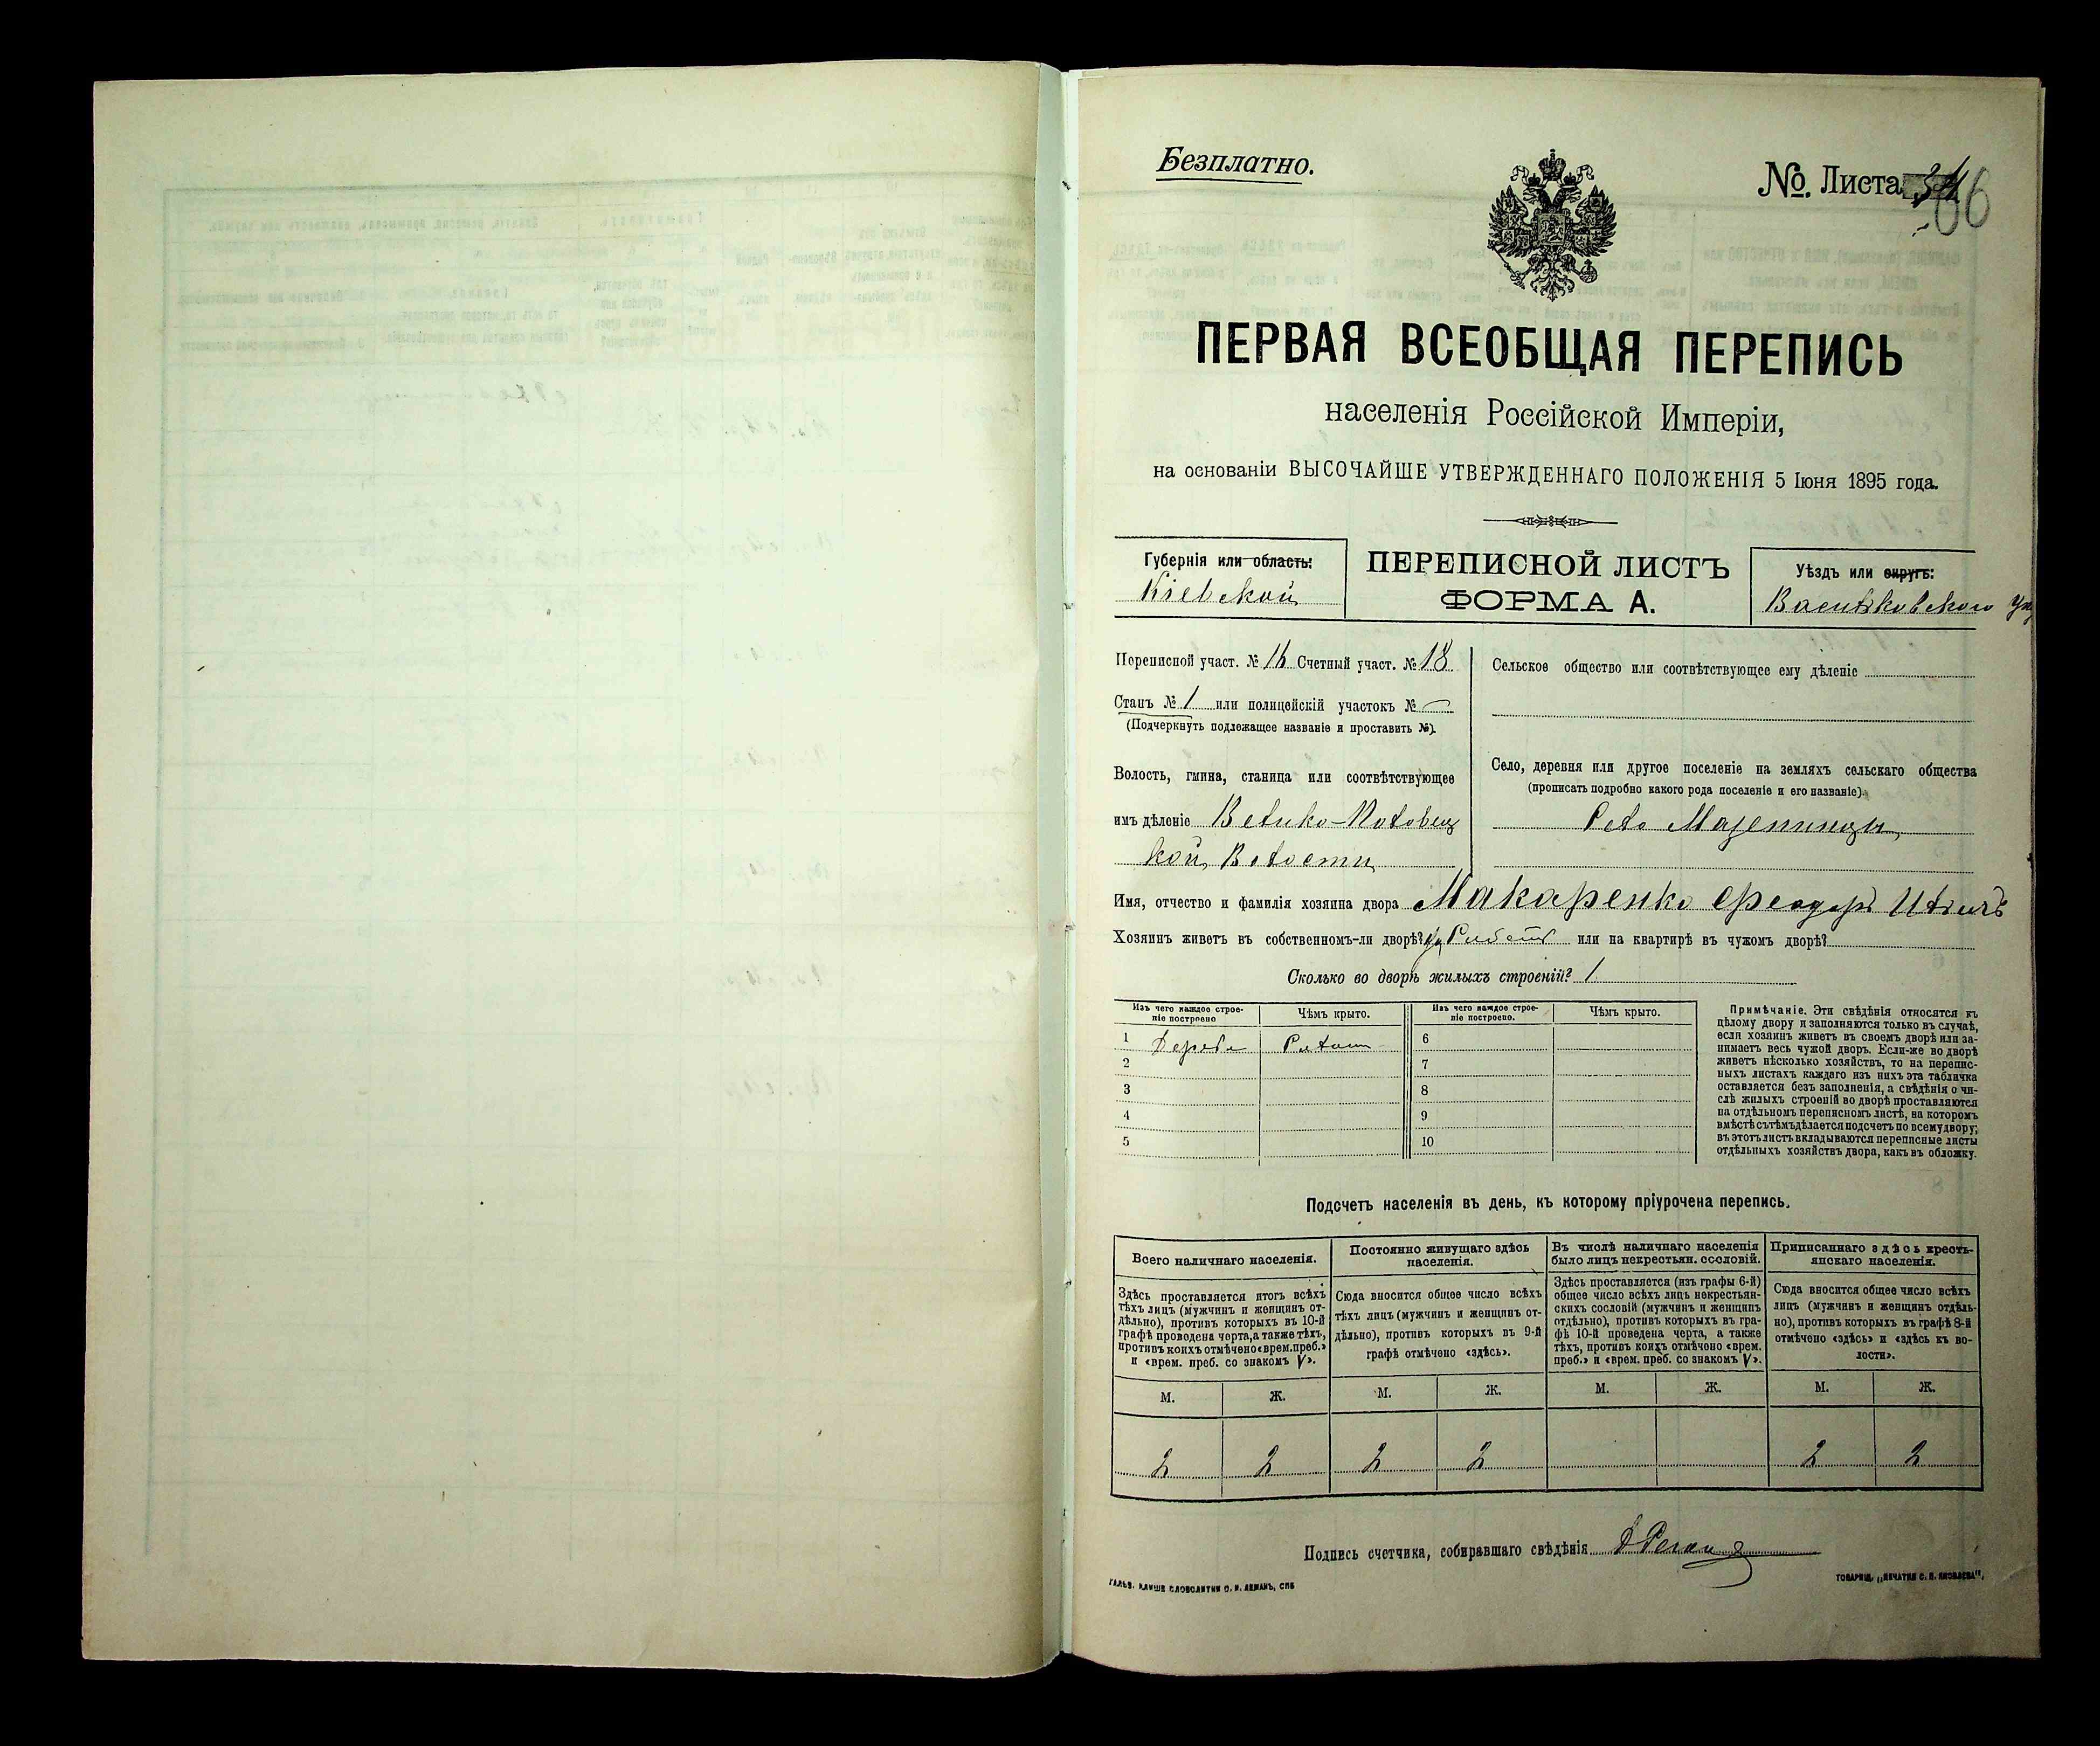 Безплатно.
№ Листа 66
ПЕРВАЯ ВСЕОБЩАЯ ПЕРЕПИСЬ
населенія Россійской Имперіи,
на основаніи ВЫСОЧАЙШЕ УТВЕРЖДЕННАГО ПОЛОЖЕНІЯ 5 Іюня 1895 года.
Губернія или область:
Кіевской
ПЕРЕПИСНОЙ ЛИСТЪ
ФОРМА А.
Уѣздъ или округъ:
Васильковского
Переписной участ. № 16 Счетный участ. № 18
Станъ № 1 или полицейскій участокъ №
(Подчеркнуть подлежащее названіе и проставить №).
Волость, гмина, станица или соотвѣтствующее
имъ дѣленіе Велико-Половец
кой Волости
Сельское общество или соотвѣтствующее ему дѣленіе
Село, деревня или другое поселеніе на земляхъ сельскаго общества
(прописать подробно какого рода поселеніе и его названіе).
Село Мазепинцы
Имя, отчество и фамилія хозяина двора Макаренко Феодоръ
Хозяинъ живетъ въ собственномъ-ли дворѣ? или на квартирѣ въ чужомъ дворѣ?
Сколько во дворѣ жилыхъ строеній? 1
Изъ чего каждое строе-
ніе построено
Чѣмъ крыто.
Изъ чего каждое строе-
ніе построено.
Чѣмъ крыто.
1 Дерева
6
2 7
3 8
4 9
5 10
Примѣчаніе. Эти свѣдѣнія относятся къ
цѣлому двору и заполняются только въ случаѣ,
если хозяинъ живетъ въ своемъ дворѣ или за-
нимаетъ весь чужой дворъ. Если-же во дворѣ
живетъ нѣсколько хозяйствъ, то на перепис-
ныхъ листахъ каждаго изъ нихъ эта табличка
оставляется безъ заполненія, а свѣдѣнія о чи-
слѣ жилыхъ строеній во дворѣ проставляются
на отдѣльномъ переписномъ листѣ, на которомъ
вмѣстѣ съ тѣмъ дѣлается подсчетъ по всему двору;
въ этотъ листъ вкладываются переписные листы
отдѣльныхъ хозяйствъ двора, какъ въ обложку.
Подсчетъ населенія въ день, къ которому пріурочена перепись.
Всего наличнаго населенія.
Здѣсь проставляется итогъ всѣхъ
тѣхъ лицъ (мужчинъ и женщинъ от-
дѣльно), противъ которыхъ въ 10-й
графѣ проведена черта, а также тѣхъ,
противъ коихъ отмѣчено «врем. преб.»
и «врем. преб. со знакомъ V».
М. Ж.
2 2
Постоянно живущаго здѣсь
населенія.
Сюда вносится общее число всѣхъ
тѣхъ лицъ (мужчинъ и женщинъ от-
дѣльно), противъ которыхъ въ 9-й
графѣ отмѣчено «здѣсь».
М. Ж.
2 2
Въ числѣ наличнаго населенія
было лицъ некрестьян. сословій.
Здѣсь проставляется (изъ графы 6-й)
общее число всѣхъ лицъ некрестьян-
скихъ сословій (мужчинъ и женщинъ
отдѣльно), противъ которыхъ въ гра-
фѣ 10-й проведена черта, а также
тѣхъ, противъ коихъ отмѣчено «врем.
преб.» и «врем. преб. со знакомъ V».
М. Ж.
Приписаннаго здѣсь кресть-
янскаго населенія.
Сюда вносится общее число всѣхъ
лицъ (мужчинъ и женщинъ отдѣль-
но), противъ которыхъ въ графѣ 8-й
отмѣчено «здѣсь» и «здѣсь къ во-
лости».
М. Ж.
2 2
Подпись счетчика, собиравшаго свѣдѣнія
ГАЛЬВ. КЛИШЕ СЛОВОЛИТНИ О. И. ЛЕМАНЪ, СПБ
ТОВАРИЩ. „ПЕЧАТНЯ С. П. ЯКОВЛЕВА“.